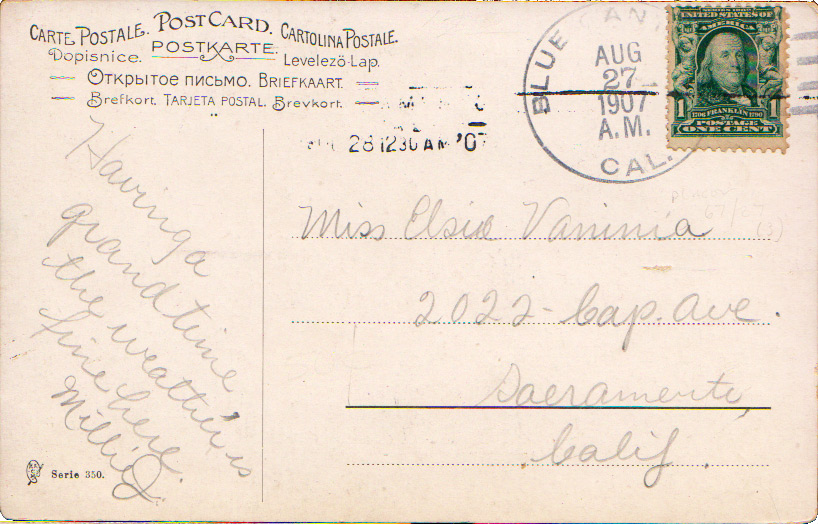 CARTE POSTALE. POSTCARD. CARTOLINA POSTALE.
Dopisnice. POSTKARTE. Levelező-Lap.
Открытое письмо. BRIEFKAART.
Brefkort. TARJETA POSTAL. Brevkort.
BLUE CAN
AUG
27
1907
A.M.
CAL.
28 1230 AM '07
UNITED STATES OF
AMERICA
1
1706 FRANKLIN 1790
POSTAGE
ONE CENT
Having a
grand time
the weather is
fine here.
Millie
Miss Elsie Vaninia
2022 - Cap. Ave.
Sacramento,
Calif.
Serie 350.